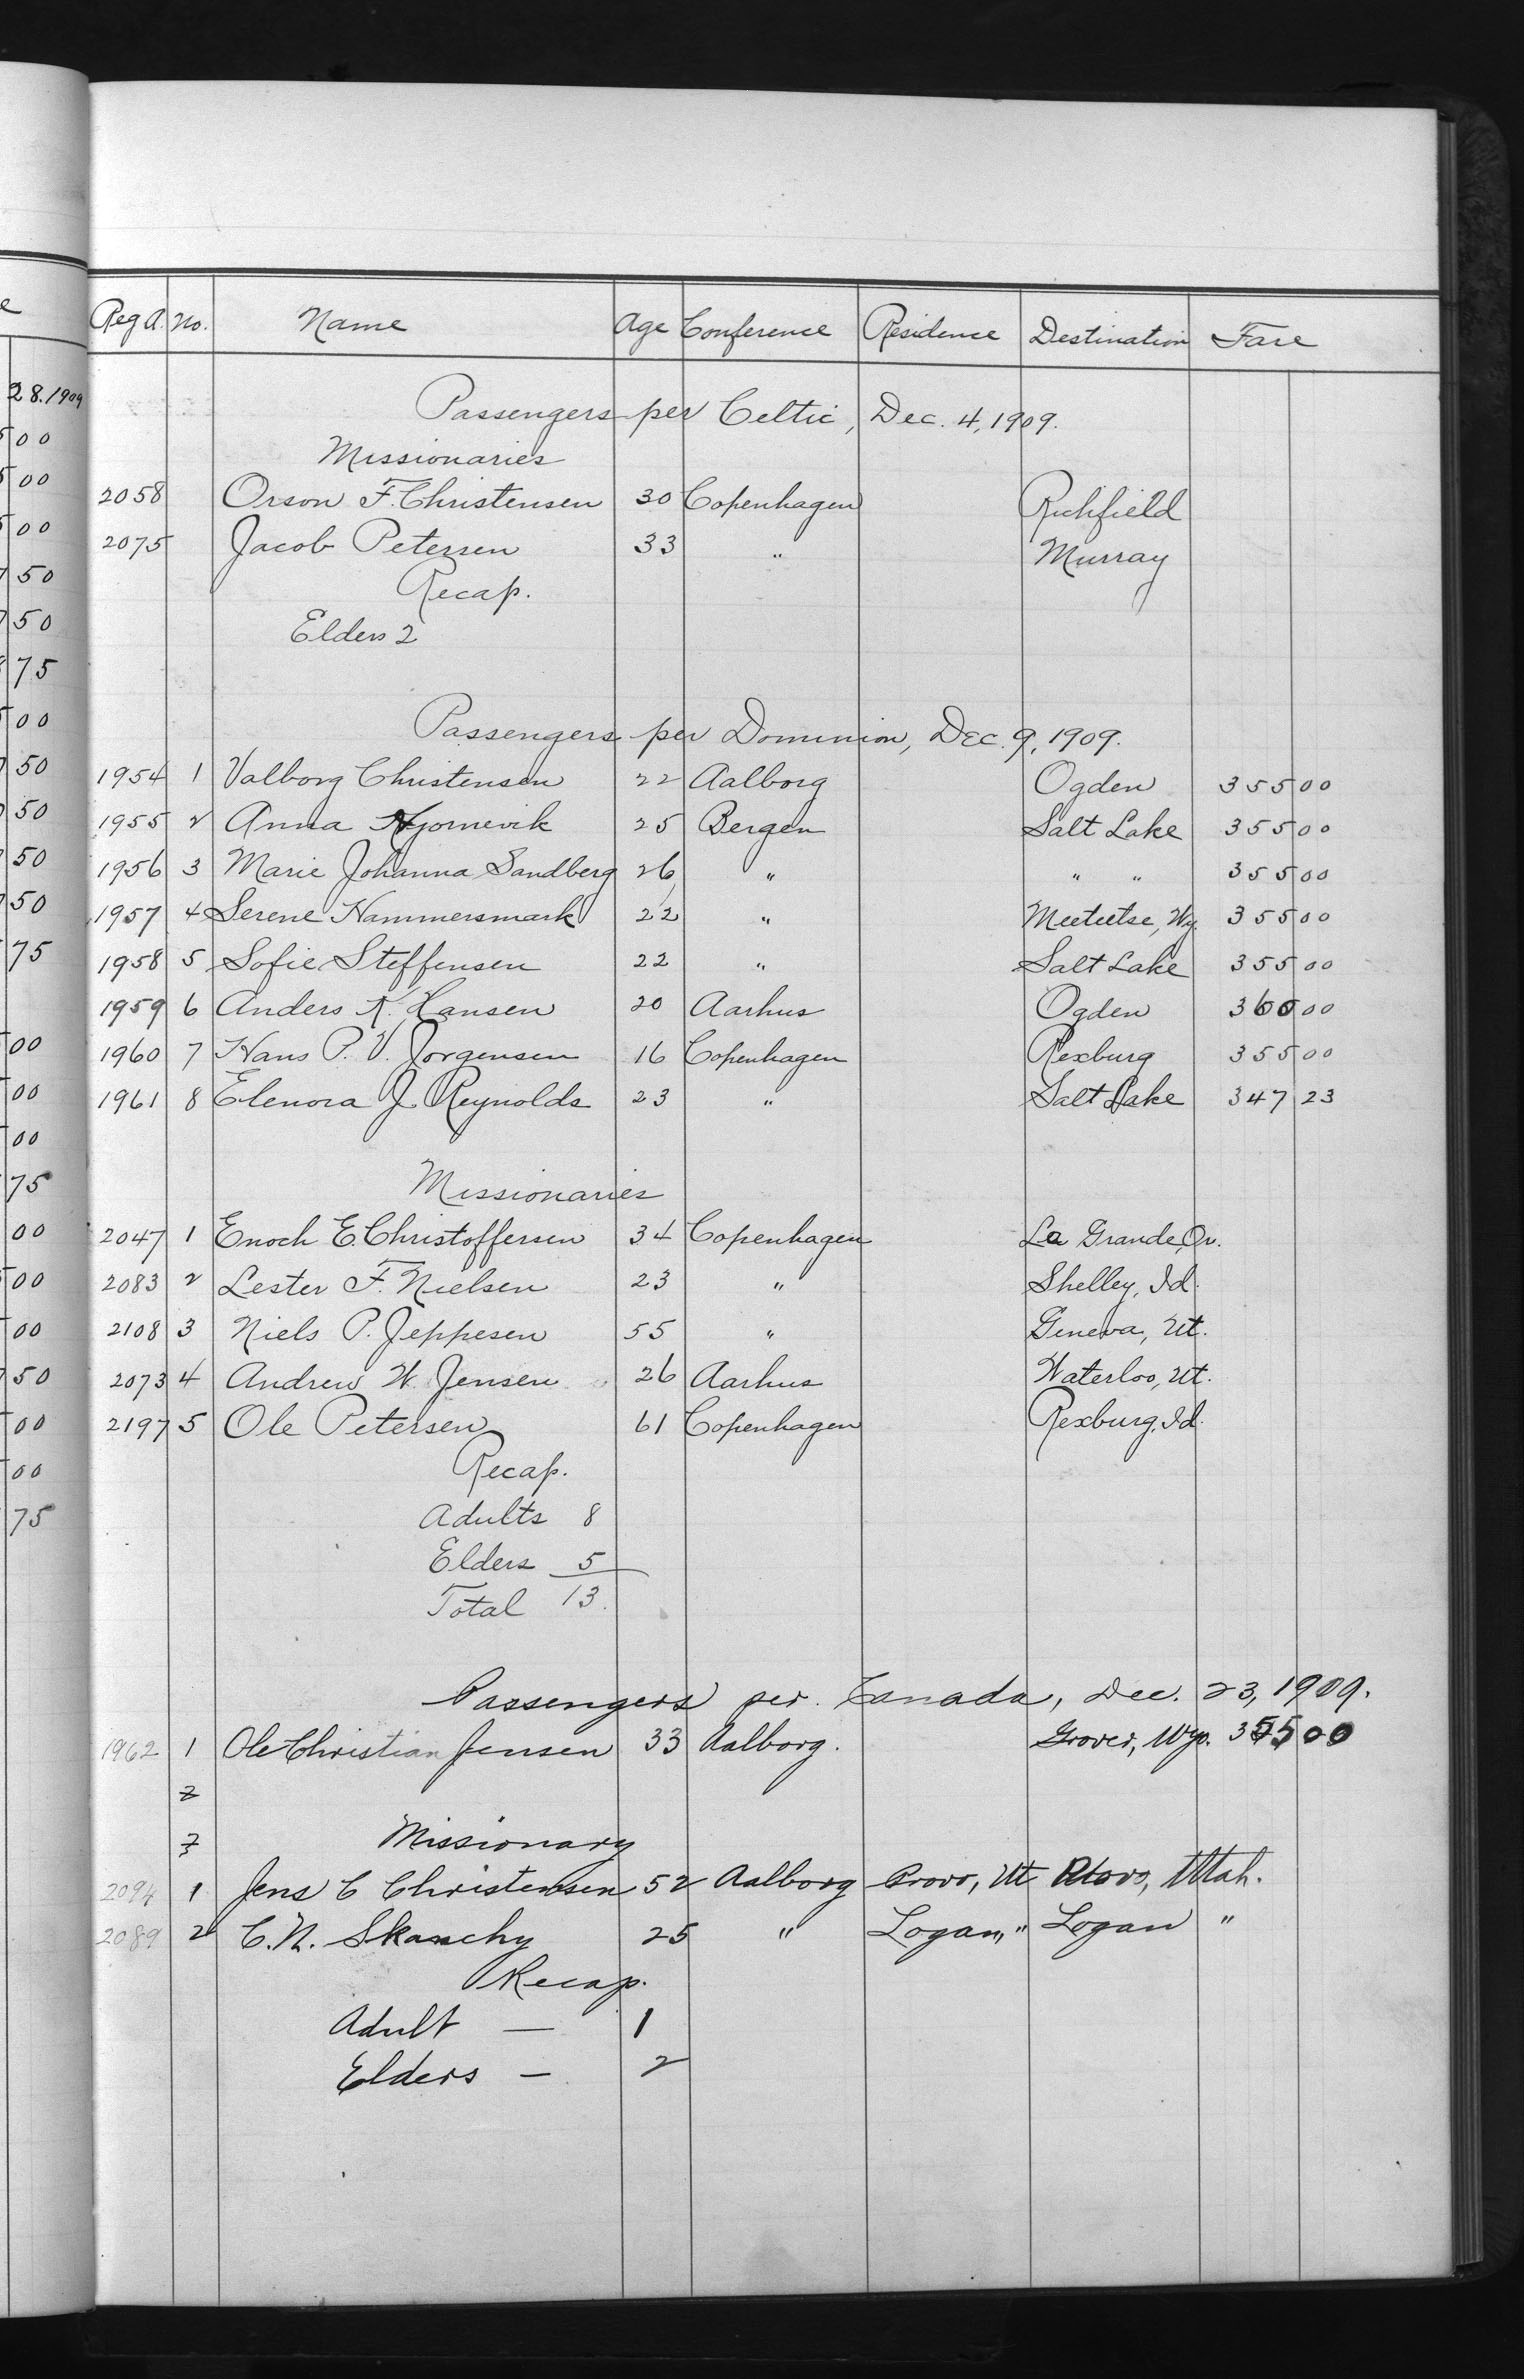 e
28.1909
500
500
500
50
50
75
500
50
50
50
50
75
00
00
00
75
00
00
00
50
00
00
75
Reg A. No. Name Age Conference Residence Destination Fare
Passengers per Celtic, Dec. 4, 1909.
Missionaries
2058 Orson F. Christensen 30 Copenhagen Richfield
2075 Jacob Petersen 33 " Murray
Recap.
Elders 2
Passengers per Dominion, Dec. 9, 1909.
1954 1 Valborg Christensen 22 Aalborg Ogden 355 00
1955 2 Anna 25 Bergen Salt Lake 355 00
1956 3 Marie Johanna Sandberg 26 " " " 355 00
1957 4 Serene Hammersmark 22 " Meeteetse, Wy. 355 00
1958 5 Sofie Steffensen 22 " Salt Lake 355 00
1959 6 Anders K. Hansen 20 Aarhus Ogden 360 00
1960 7 Hans P. V. Jorgensen 16 Copenhagen Rexburg 355 00
1961 8 Elenora J. Reynolds 23 " Salt Lake 347 23
Missionaries
2047 1 Enoch E. Christoffersen 34 Copenhagen La Grande, Or.
2083 2 Lester F. Nielsen 23 " Shelley, Id.
2108 3 Niels P. Jeppesen 55 " Geneva, Ut.
2073 4 Andrew W. Jensen 26 Aarhus Waterloo, Ut.
2197 5 Ole Petersen 61 Copenhagen Rexburg, Id.
Recap.
Adults 8
Elders 5
Total 13.
Passengers per. Canada, Dec. 23, 1909.
1962 1 Ole Christian Jensen 33 Aalborg. Grover, Wyo. 355 00
2
3 Missionary
2094 1 Jens C Christensen 52 Aalborg Provo, Ut Provo, Utah.
2089 2 C. N. Skanchy 25 " Logan, " Logan "
Recap.
Adult — 1
Elders — 2